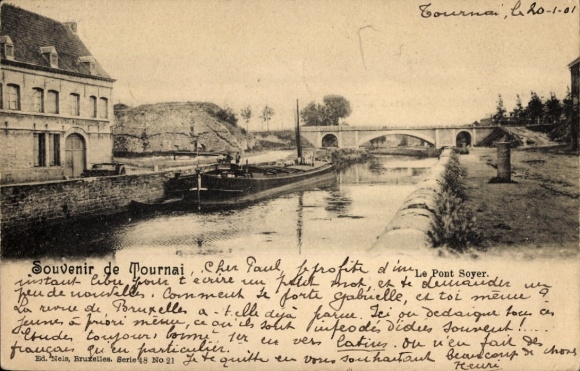 Tournai, le 20-1-01
Souvenir de Tournai
Le Pont Soyer.
Cher Paul, Je profite d'un
instant libre pour t'écrire un petit mot, et te demander un
peu de nouvelles. Comment se porte Gabrielle, et toi même?
La revue de Bruxelles a-t-elle déjà parue. Ici on dédaigne tous ces
jeunes à priori même, ce qu'ils sont inféodés souvent!...
Etudes toujours 1er en vers latins. On n'en fait des
français qu'en particulier. Je te quitte en vous souhaitant beaucoup de choses
Henri
Ed. Nels, Bruxelles. Serie 48 No 21